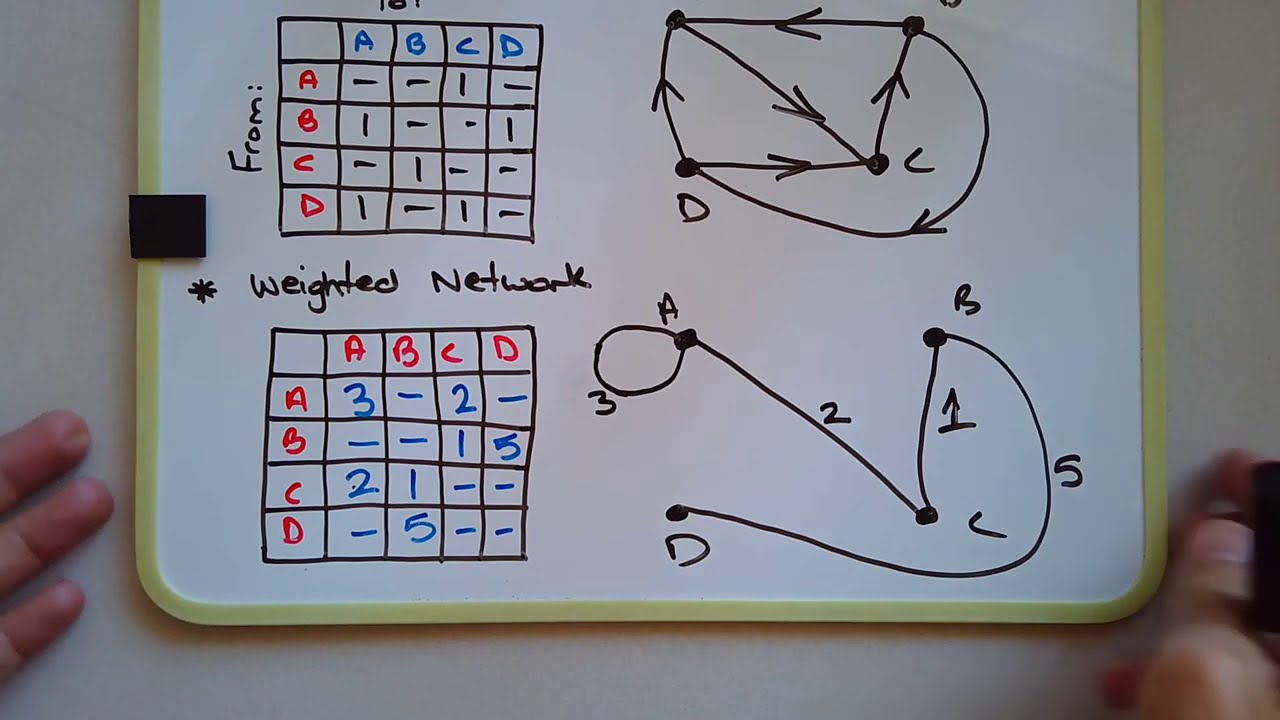 A B C D
From:
A - - 1 -
B 1 - - 1
C - 1 - -
D 1 - 1 -
C
D
* Weighted Network
A B C D
A 3 - 2 -
B - - 1 5
C 2 1 - -
D - 5 - -
A
B
3
2
1
5
C
D